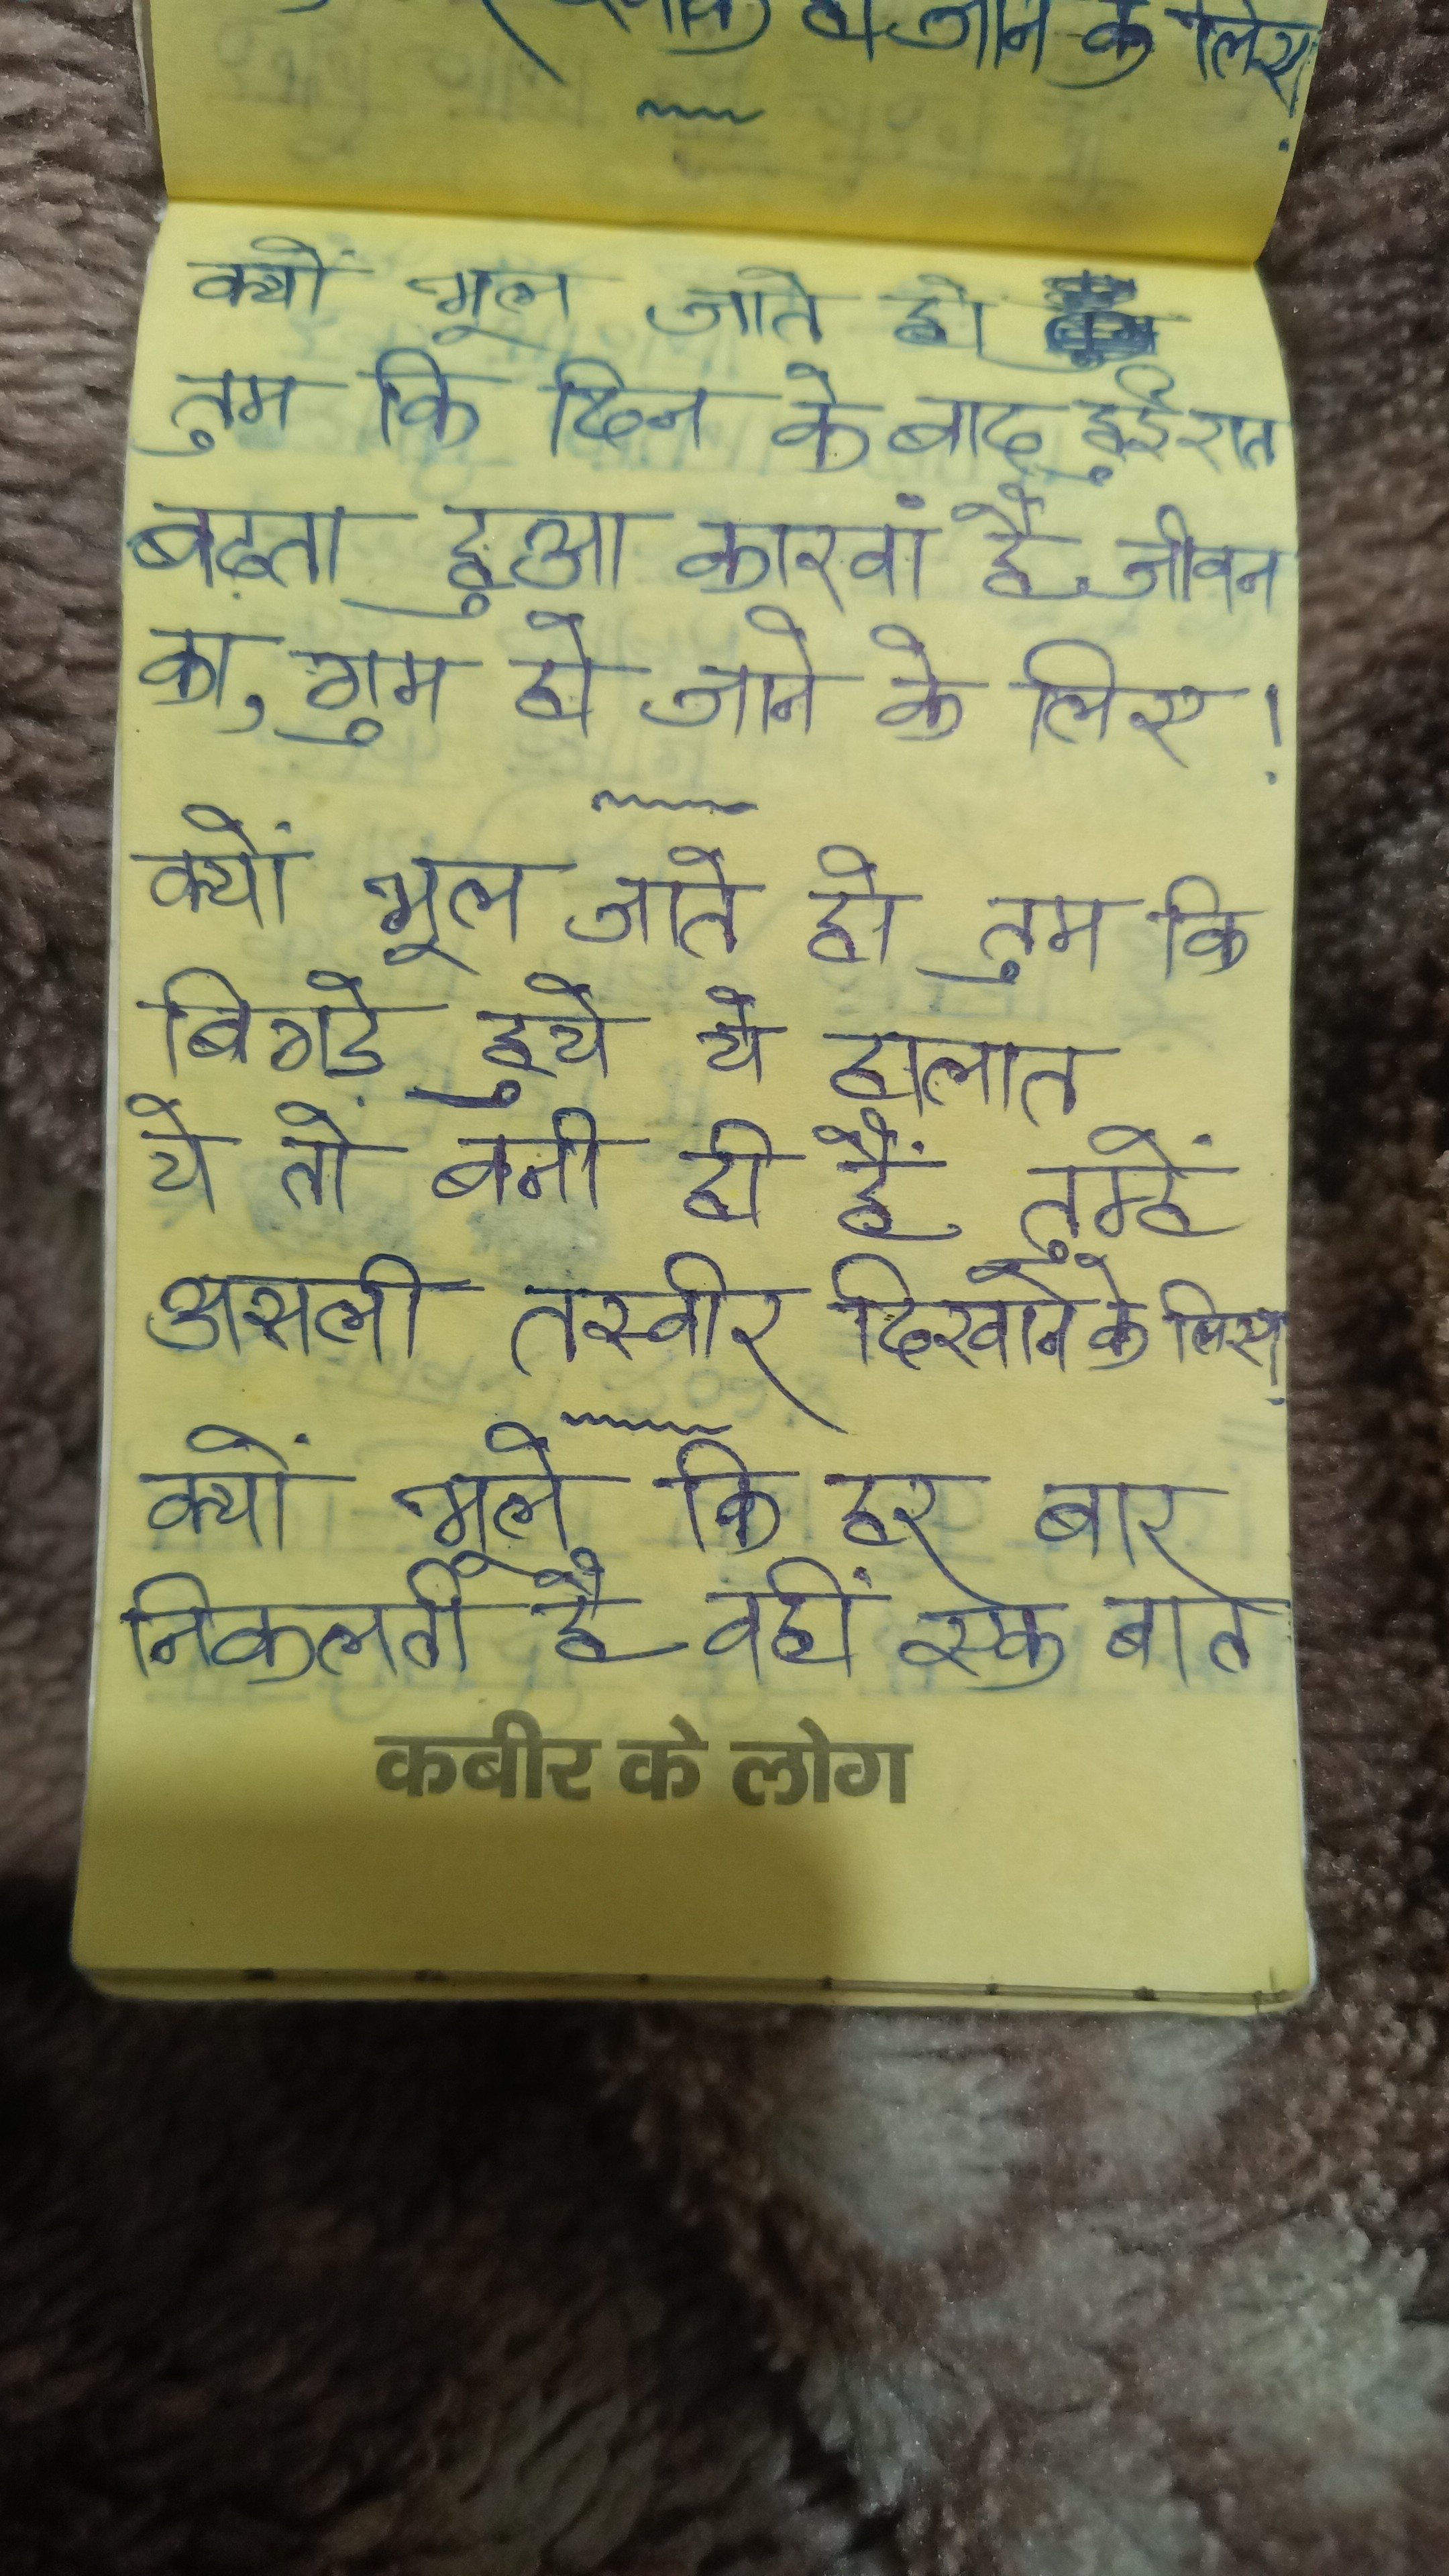 हो जाने के लिए!
क्यों भूल जाते हो
तुम कि दिन के बाद हुई रात
बढ़ता हुआ कारवां है जीवन
का, गुम हो जाने के लिए!
क्यों भूल जाते हो तुम कि
बिगड़े हुये ये हालात
ये तो बनी ही हैं तुम्हें
असली तस्वीर दिखाने के लिए!
क्यों भूले कि हर बार
निकलती है वहीं एक बात
कबीर के लोग